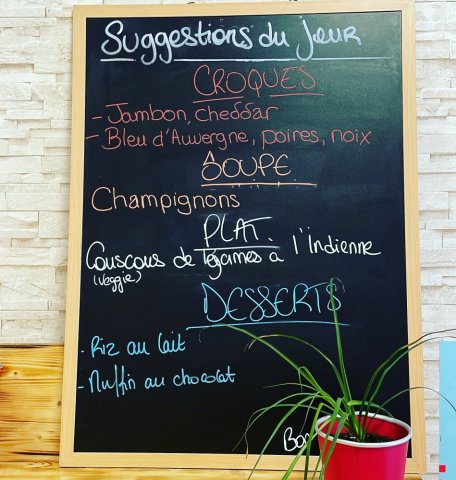 Suggestions du jour
CROQUES
- Jambon, cheddar
- Bleu d'Auvergne, poires, noix
SOUPE
Champignons
PLAT.
Couscous de légumes à l'Indienne
(veggie)
DESSERTS
- Riz au lait
- Muffin au chocolat